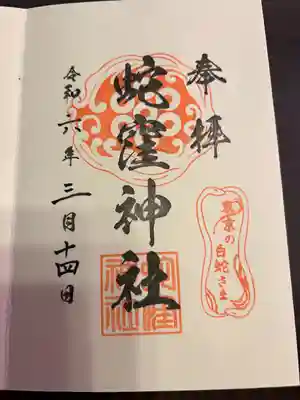 奉拝
東京の白蛇さま
蛇窪神社
令和六年三月十四日